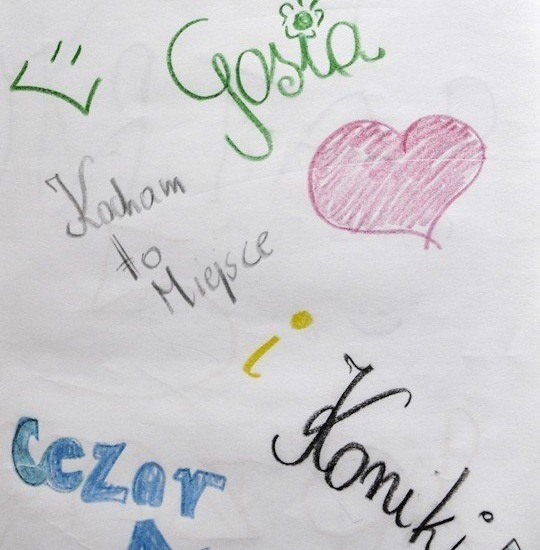 Gosia
Kocham
to
Miejsce
i
Koniki
Cezar